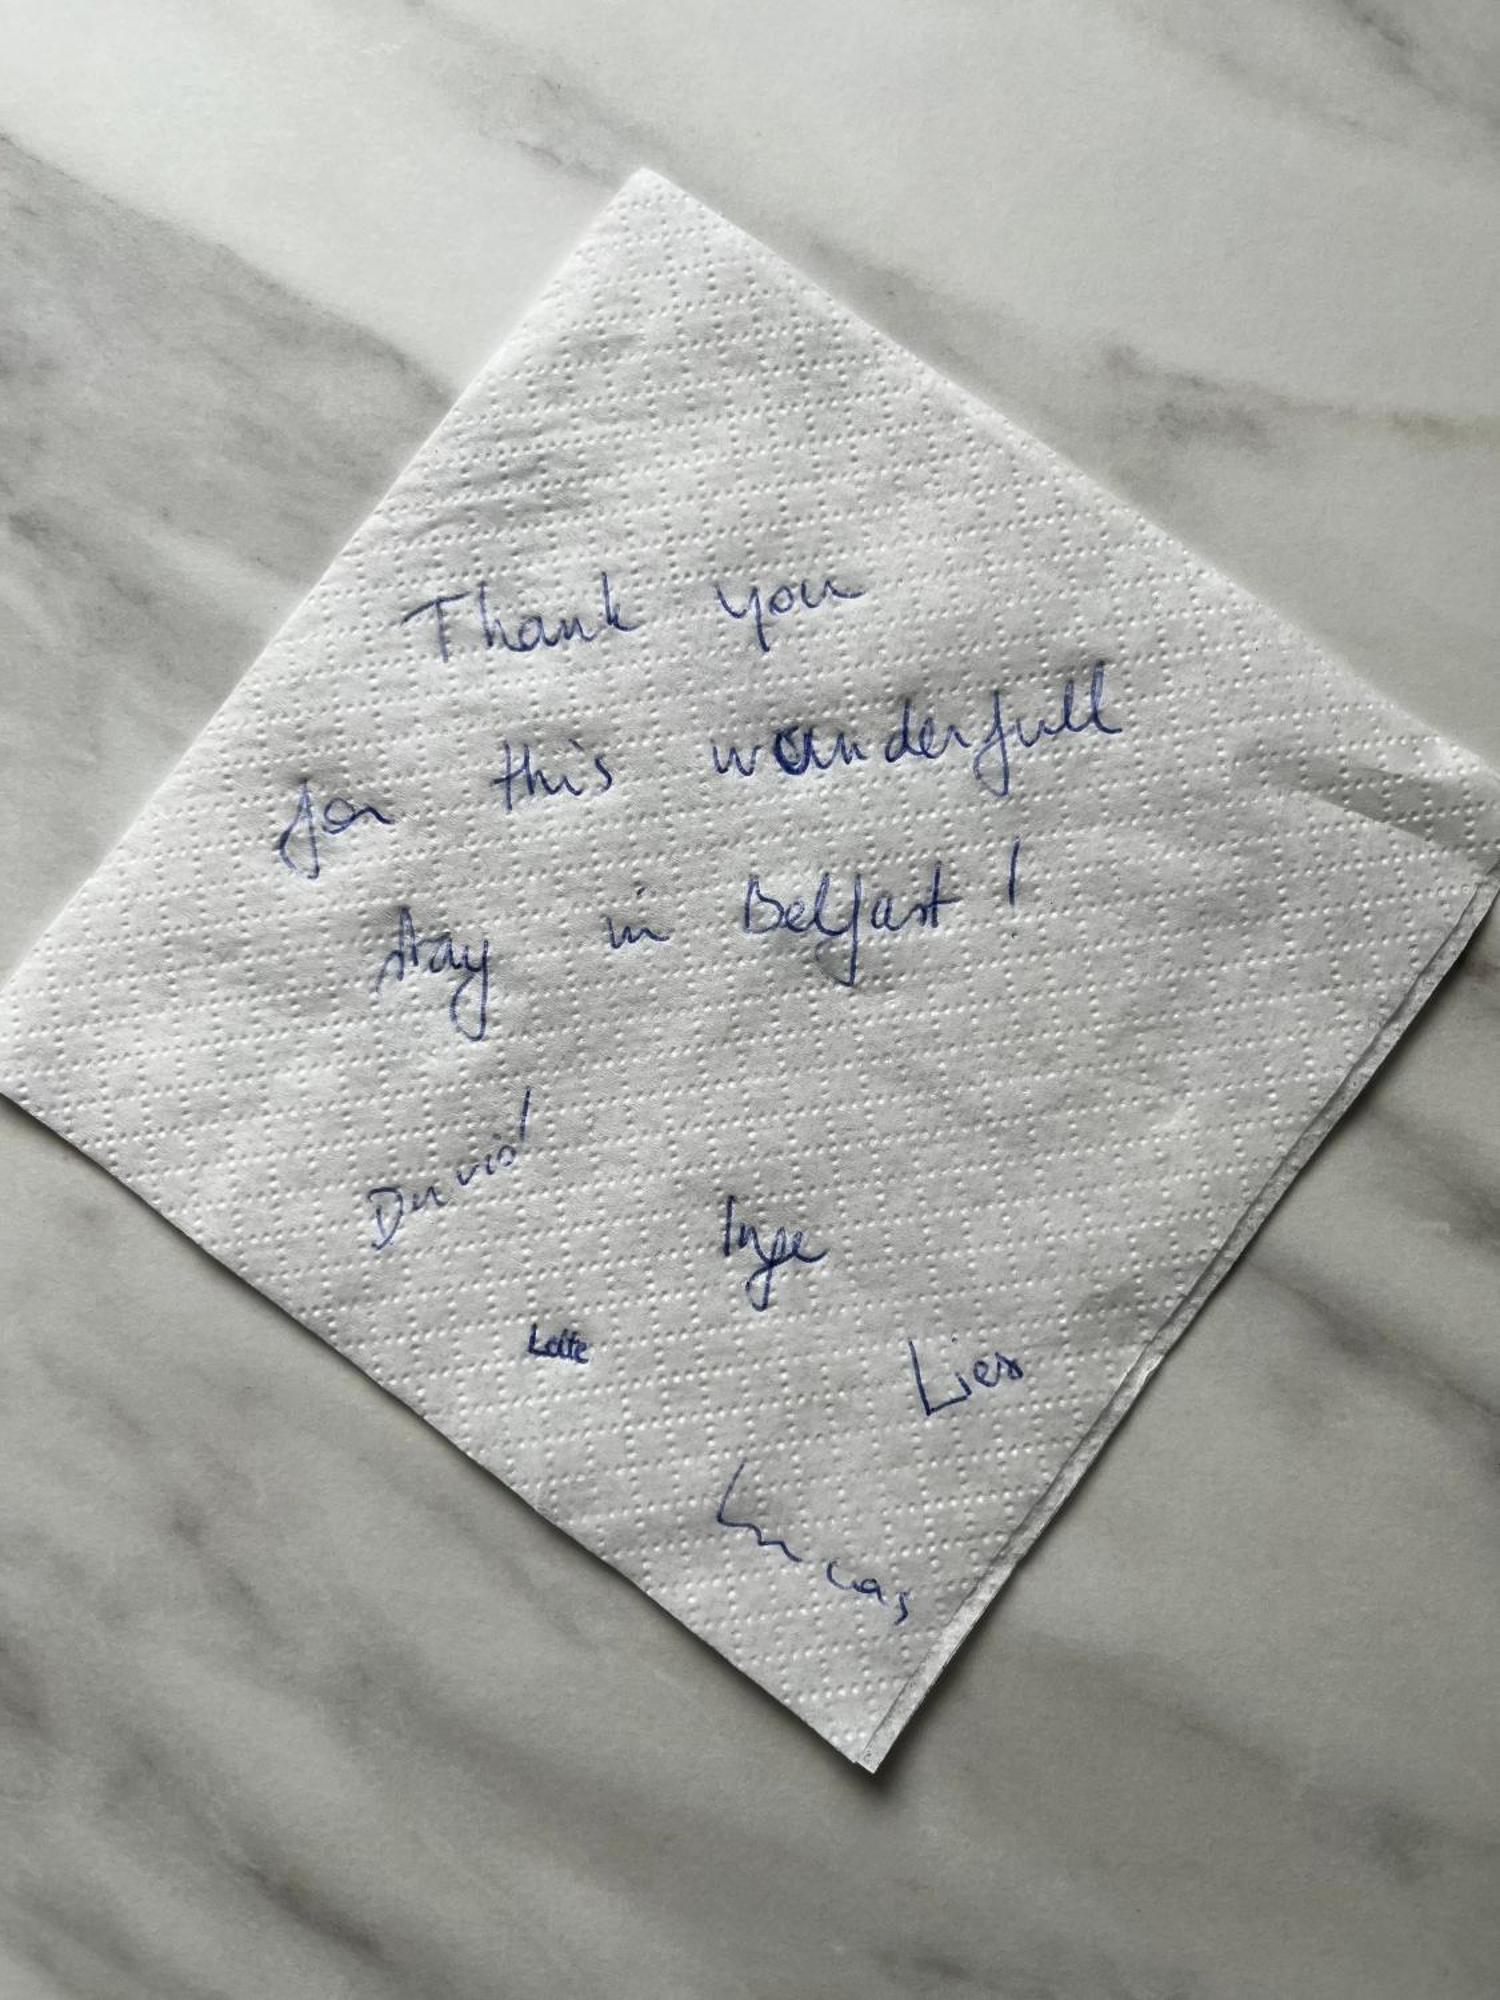 Thank you
for this wonderfull
stay in Belfast !
David
Inge
Lotte
Lies
Lucas